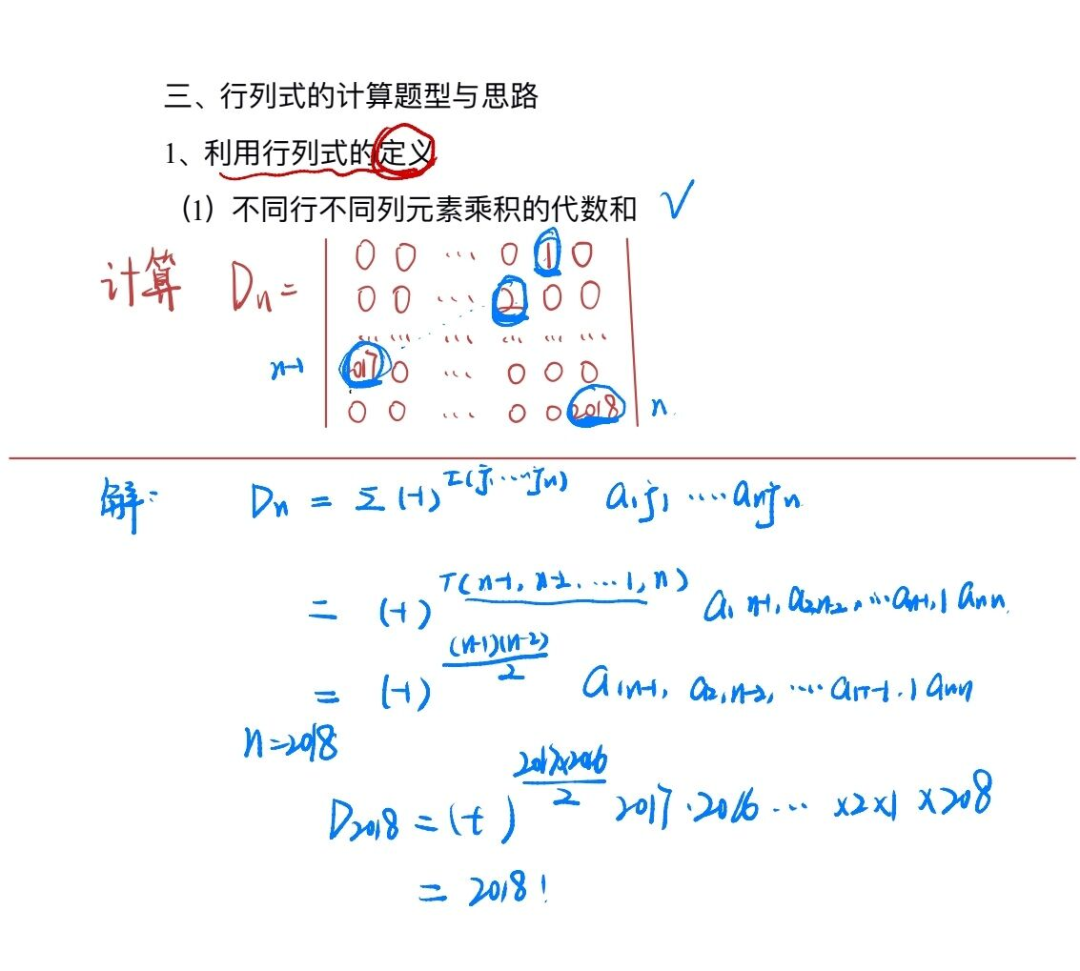 三、行列式的计算题型与思路
1、利用行列式的定义
（1）不同行不同列元素乘积的代数和 √
计算 Dn =
0 0 ... 0 1 0
0 0 ... 2 0 0
... ... ... ... ... ...
n-1 2017 0 ... 0 0 0
0 0 ... 0 0 2018 n
解: Dn = Σ (-1)^τ(j1...jn) a1j1 .... anjn
= (-1)^τ(n-1, n-2, ...1, n) a1 n-1, a2 n-2, ... an-1,1 ann
= (-1)^(n-1)(n-2)/2 a1n-1, a2,n-2, .... an-1.1 ann
n=2018
D2018 = (-1)^2017×2016/2 2017·2016 ... ×2×1 ×2018
= 2018!